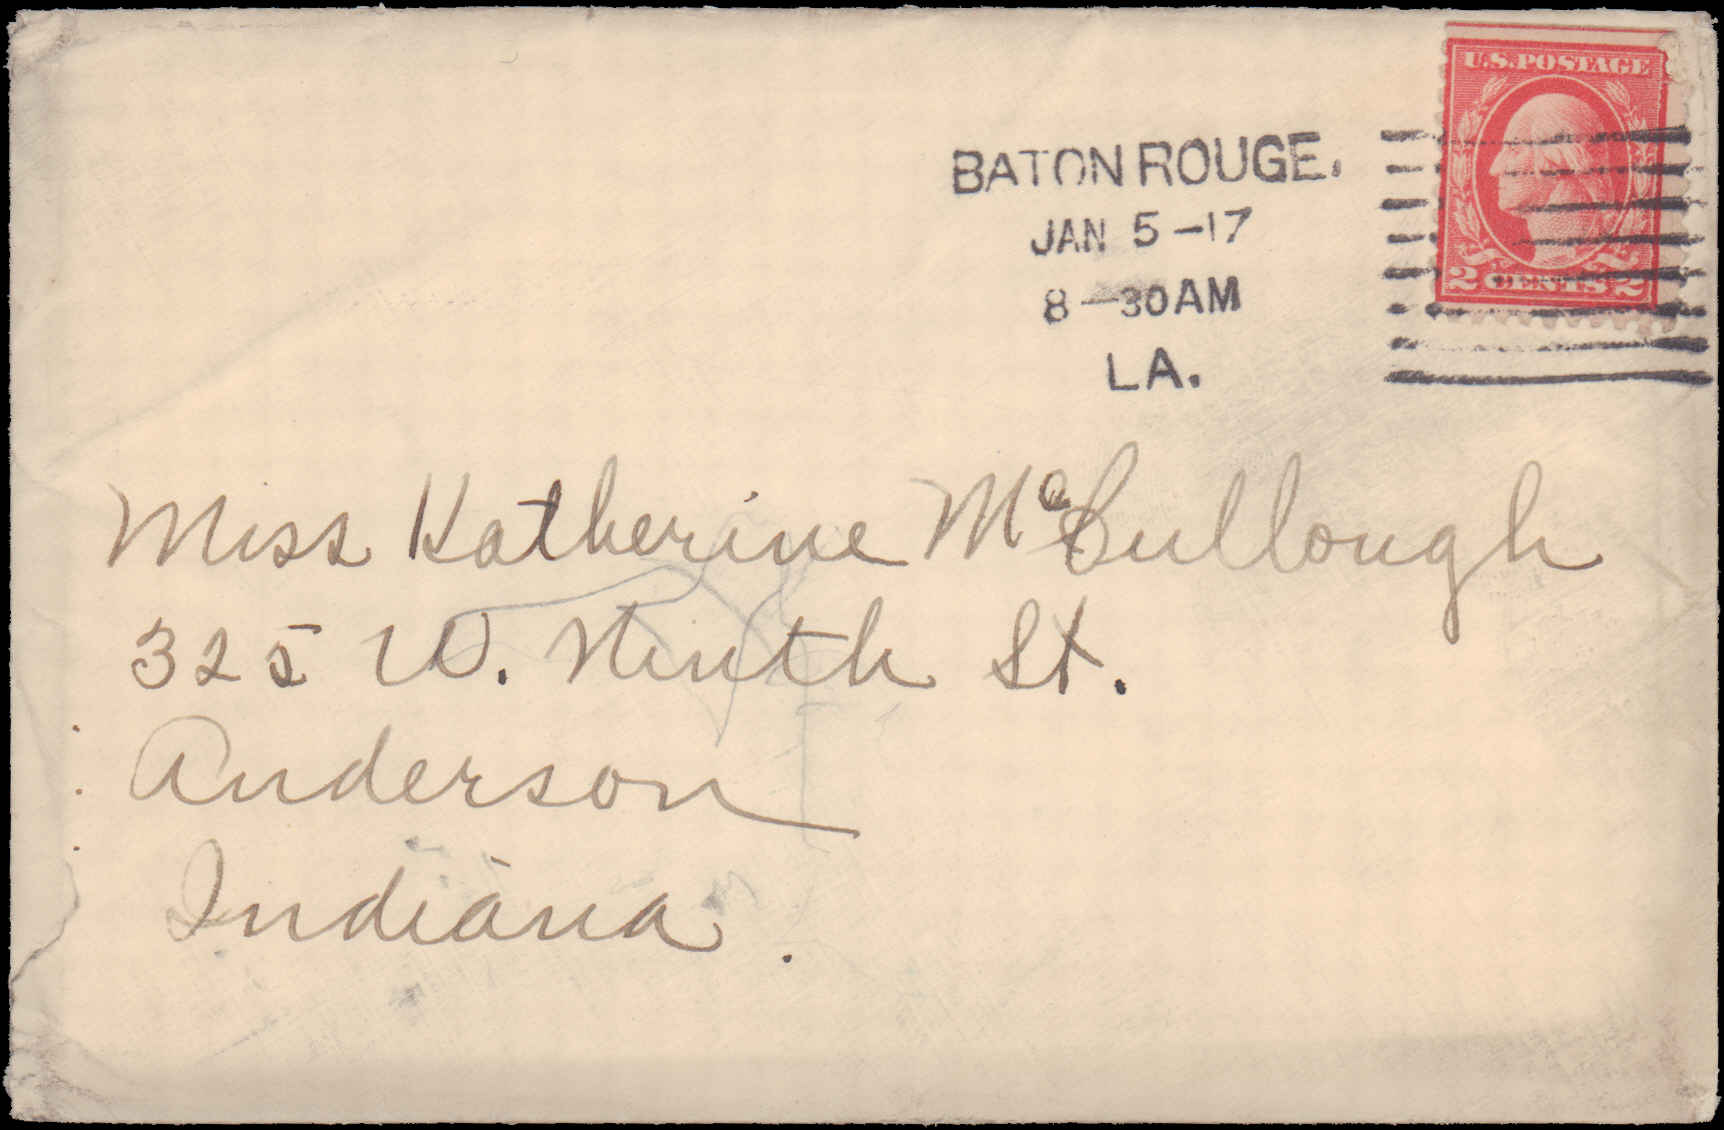 U.S. POSTAGE
2 CENTS 2
BATON ROUGE.
JAN 5-17
8-30AM
LA.
Miss Katherine McCullough
325 W. Ninth St.
Anderson
Indiana.